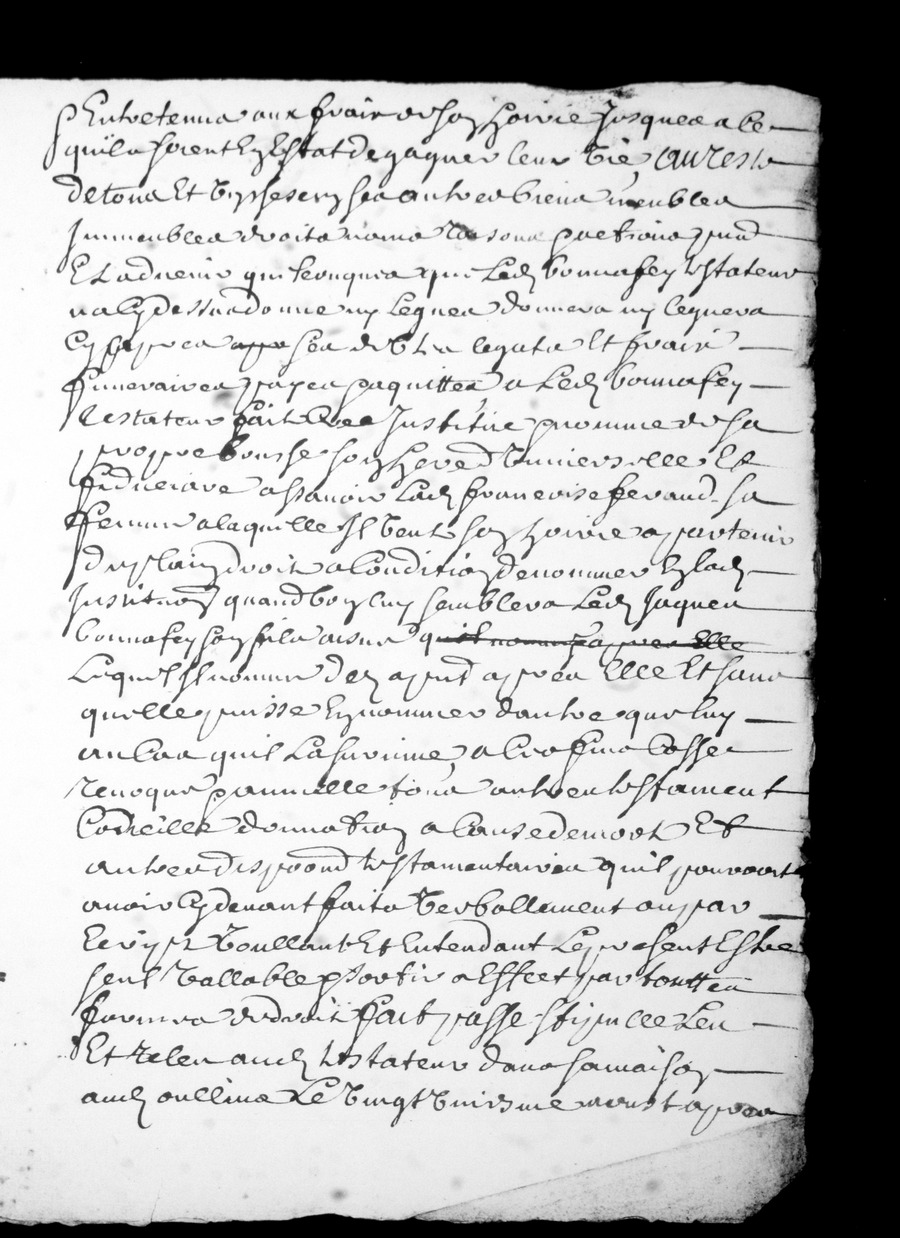 Entretenus aux fraix de son hoirie Jusques a ce
quils soient En Estat de gagner leur vie, au reste
de tous Et ungs ses autres biens meubles
Immeubles droits noms raisons actions
Et advenir quelconques que Led Bonnafey testateur
na Cy dessus donne ny Legues donnera ny leguera
Cy apres ses legats Et fraix
funeraires payes acquittes, a Led Bonnafey
testateur fait Institue nomme de sa
propre bouche son hered universelle Et
fiduciere a scavoir Lad francoise feraud sa
femme a laquelle Il veut son hoirie apartenir
de plain droit a Condition de nommer En lad
Institution quand bon luy semblera Led Jaques
bonnafey son fils aisne quil nomme apres Elle
Lequel Il nomme des apnt apres Elle Et sans
quelle puisse En nommer dautre que luy
au Cas quil La survive, a Ces fins Casse
revoque annulle tous autres testament
Codicille donnation a Cause de mort Et
autres dispoond testamentaires quil pourroit
avoir Cy devant faits verballement ou par
Escript voullant Et Entendant Le present Estre
seul vallable sortir a Effect par touttes
formes de droit fait passe stipulle Leu
Et releu aud testateur dans sa maison
aud oullins Le vingt huictiesme aoust apres